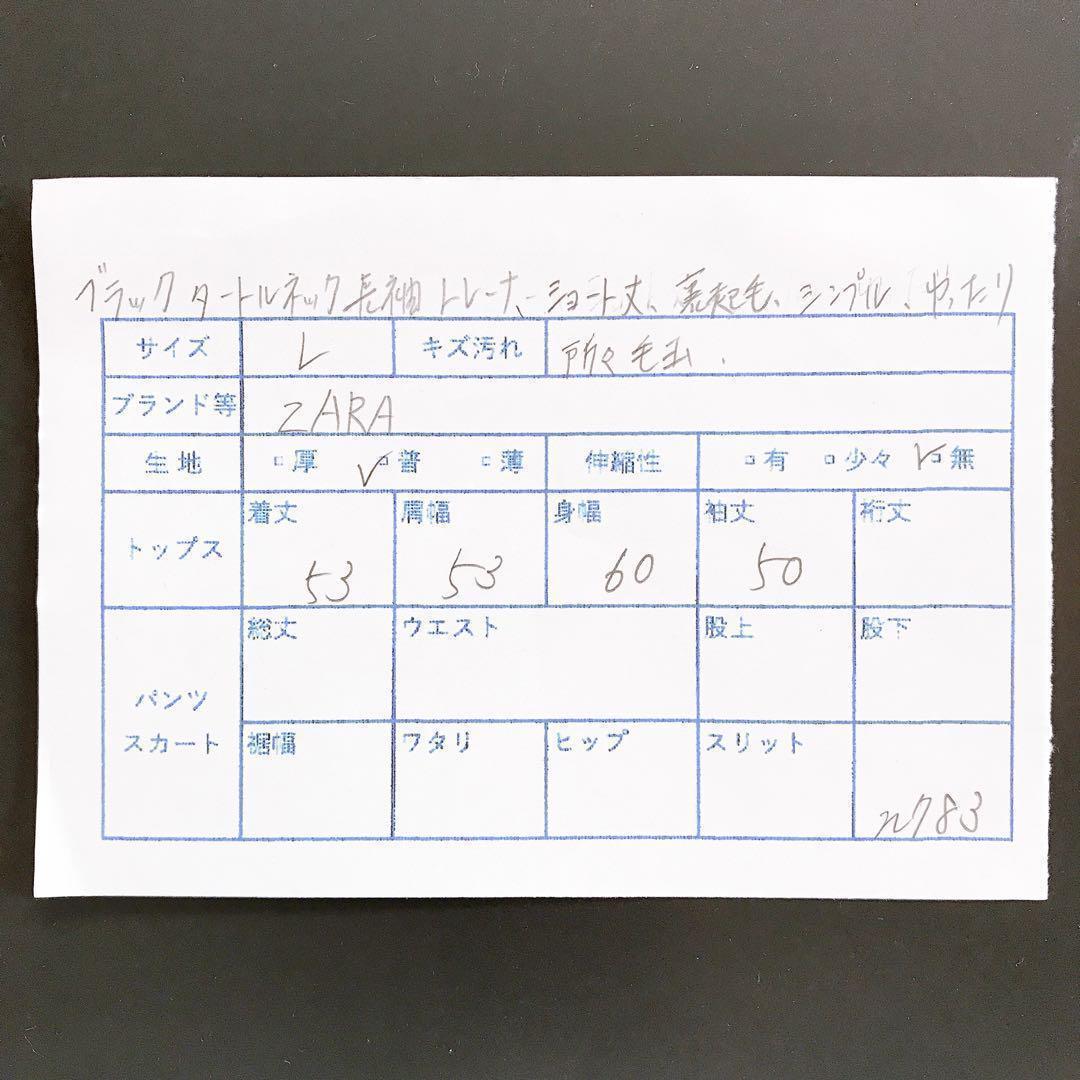 ブラックタートルネック長袖トレーナー、ショート丈、裏起毛、シンプル、ゆったり
サイズ L キズ汚れ 所々毛玉.
ブランド等 ZARA
生地 □厚 ☑普 □薄 伸縮性 □有 □少々 ☑無
トップス 着丈 53 肩幅 53 身幅 60 袖丈 50 裄丈
パンツ スカート 総丈 ウエスト 股上 股下
裾幅 ワタリ ヒップ スリット n783